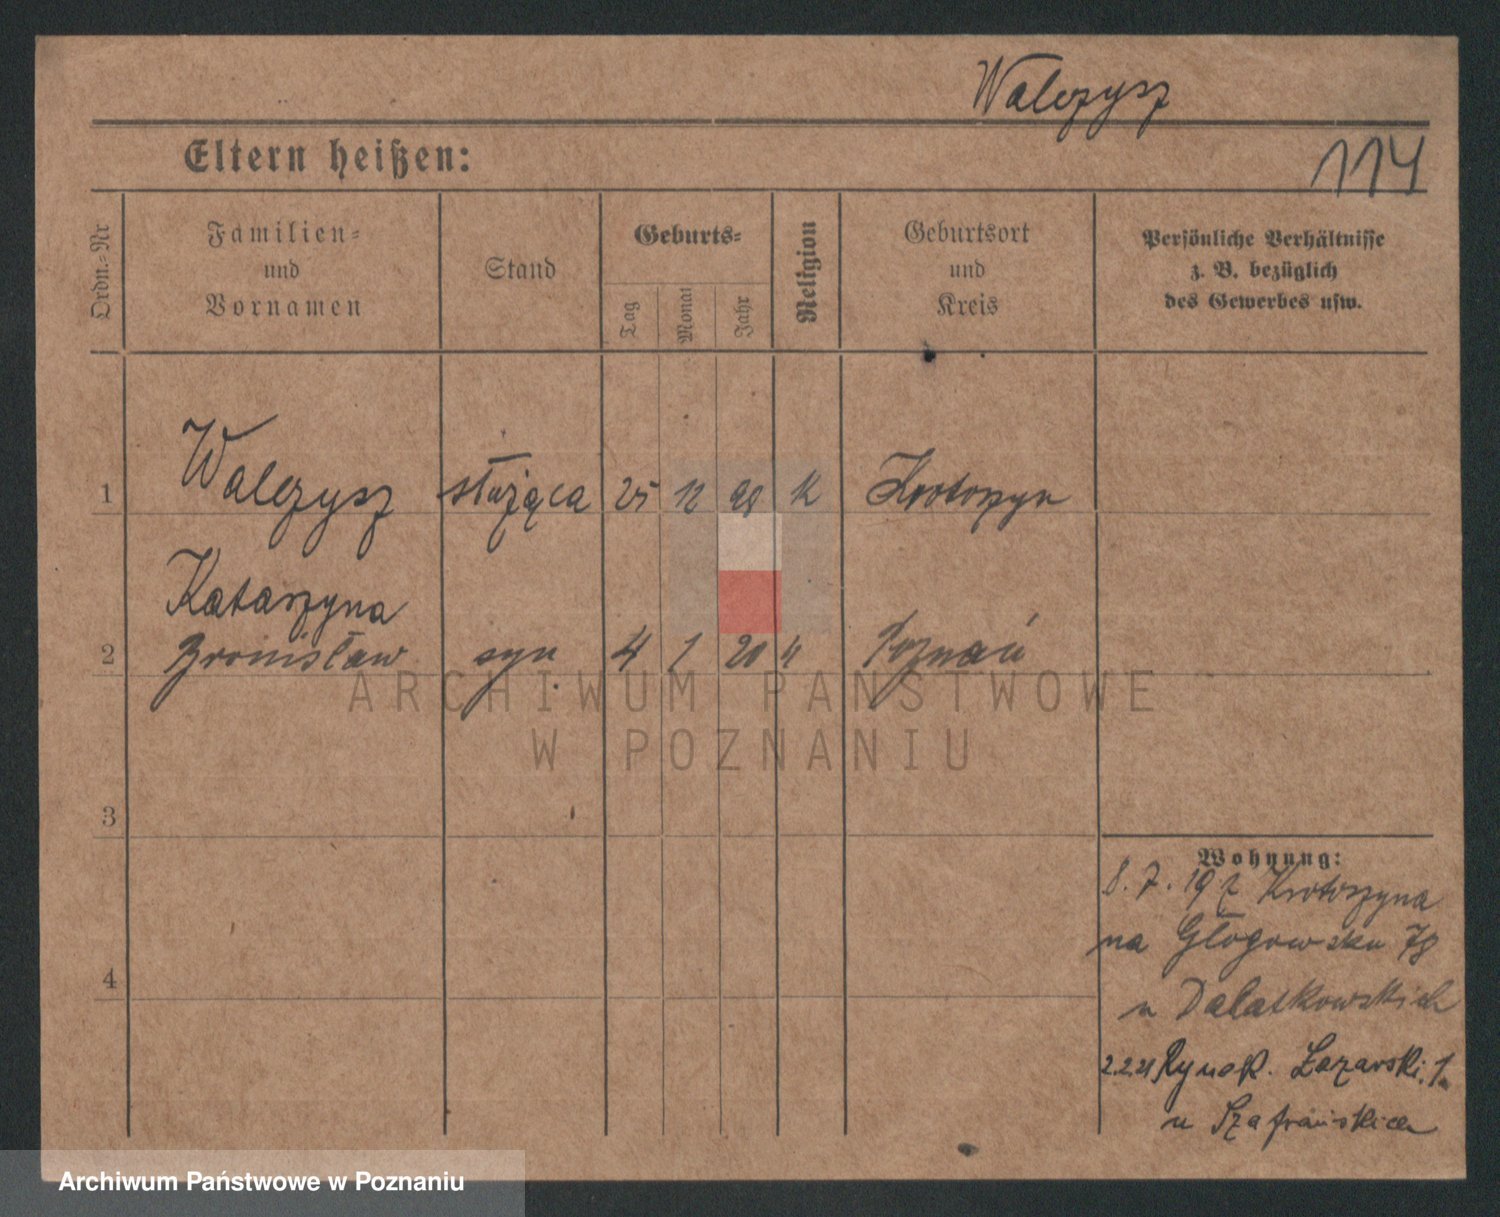 Walczysz
Eltern heißen:
114
Ordn.-Nr
Familien-
und
Vornamen
Stand
Geburts-
Tag
Monat
Jahr
Religion
Geburtsort
und
Kreis
Persönliche Verhältnisse
z. B. bezüglich
des Gewerbes usw.
1 Walczysz służąca 25 12 98 K Krotoszyn
Katarzyna
2 Bronisław syn 4 1 20 Poznań
3
4
Wohnung:
8. 7. 19 z Krotoszyna
na Głogowska 78
u Dalatkowskich
2.2.21 Rynek. Łazarski. 1.
u Szafrańskich
ARCHIWUM PAŃSTWOWE
W POZNANIU
Archiwum Państwowe w Poznaniu